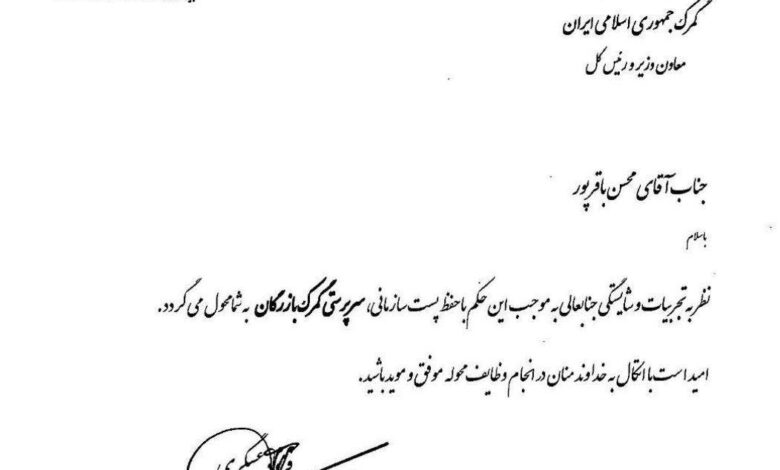 گمرک جمهوری اسلامی ایران
معاون وزیر و رئیس کل
جناب آقای محسن باقرپور
باسلام
نظر به تجربیات و شایستگی جنابعالی به موجب این حکم با حفظ پست سازمانی، سرپرستی گمرک بازرگان به شما محول می گردد.
امید است با اتکال به خداوند منان در انجام وظایف محوله موفق و موید باشید.
عسکری